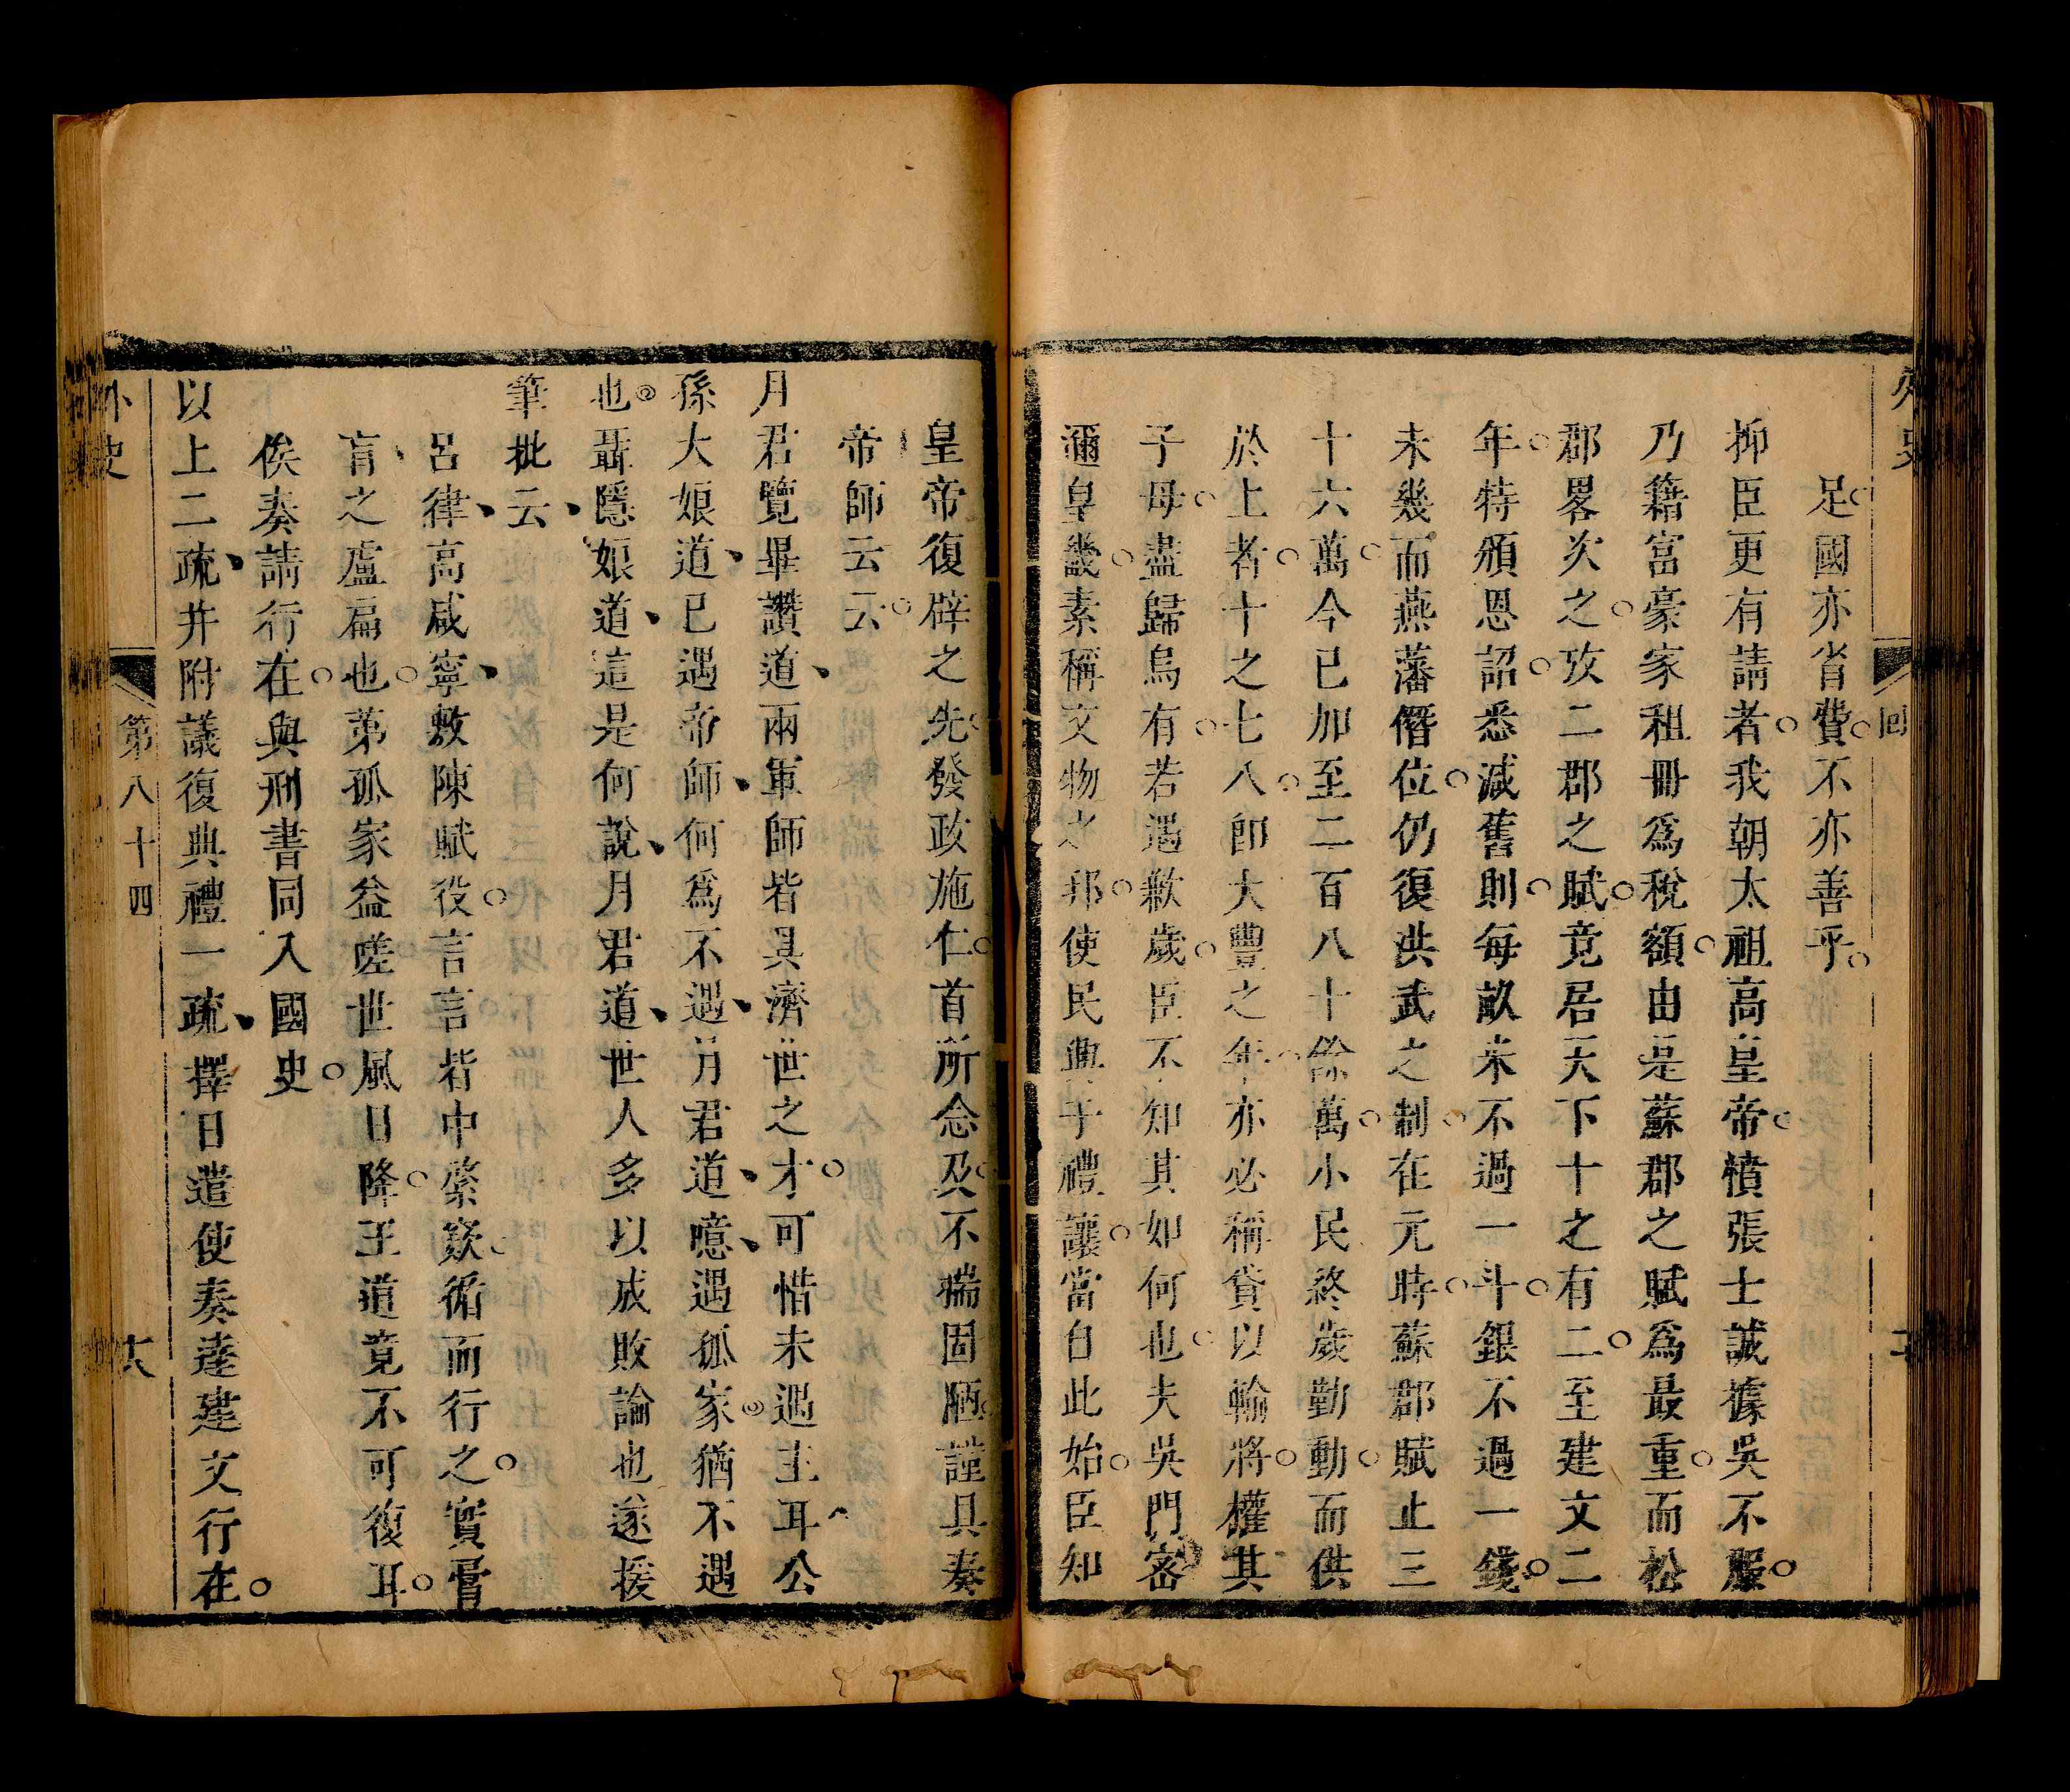 外史
回
足國亦省費不亦善乎
抑臣更有請者我朝太祖高皇帝憤張士誠據吳不服
乃籍富豪家租冊爲稅額由是蘇郡之賦爲最重而松
郡畧次之攷二郡之賦竟居天下十之有二至建文二
年特頒恩詔悉減舊則每畝米不過一斗銀不過一錢
未幾而燕藩僭位仍復洪武之制在元時蘇郡賦止三
十六萬今已加至二百八十餘萬小民終歲勤動而供
於上者十之七八卽大豐之年亦必稱貸以輸將權其
子母盡歸烏有若遇歉歲臣不知其如何也夫吳門密
邇皇畿素稱文物之邦使民興于禮讓當自此始臣知
皇帝復辟之先發政施仁首所念及不揣固陋謹具奏
帝師云云
月君覽畢讚道兩軍師皆具濟世之才可惜未遇主耳公
孫大娘道已遇帝師何爲不遇月君道噫遇孤家猶不遇
也聶隱娘道這是何說月君道世人多以成敗論也遂援
筆批云
呂律高咸寧敷陳賦役言言皆中綮窾循而行之實膏
肓之盧扁也第孤家益嗟世風日降王道竟不可復耳
俟奏請行在與刑書同入國史
以上二疏并附議復典禮一疏擇日遣使奏達建文行在
外史
第八十四
六